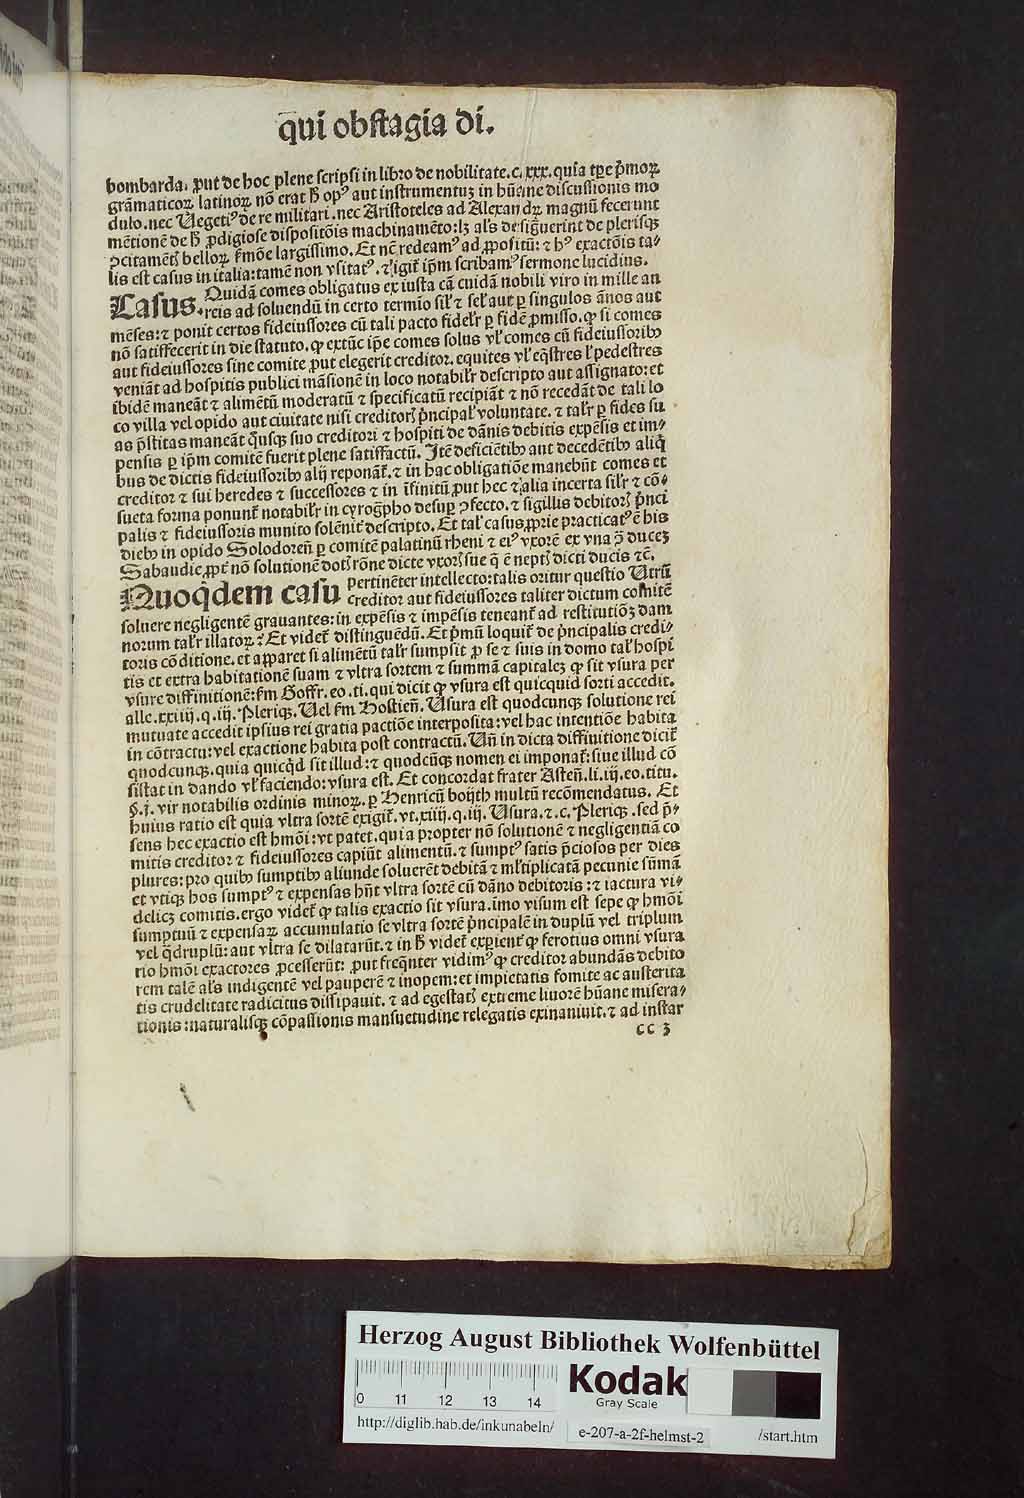 q̄ui obstagia di.
bombarda. ꝓut de hoc plene scripsi in libro de nobilitate.c.xxx. quia tp̄e p̄moꝝ
grāmaticoꝝ latinoꝝ nō erat h̄ opꝰ aut instrumentuꝫ in hūane discussionis mo
dulo. nec Uegetiꝰ de re militari. nec Aristoteles ad Alexandꝝ magnū fecerunt
mētionē de h̄ ꝓdigiose dispositōis machinamēto: lꝫ al's desigūerint de plerisqꝫ
ↄcitamētꝭ belloꝝ f̄mōe largissimo. Et nē redeamꝰ ad ꝓpositū: ⁊ hꝰ exactōis ta⸗
lis est casus in italia: tamē non vsitatꝰ. ⁊ igit̄ ip̄m scribamꝰ sermone lucidius.
Casus. Quidā comes obligatus ex iusta cā cuidā nobili viro in mille au
reis ad soluendū in certo termīo sil'r ⁊ sel' aut ꝑ singulos ānos aut
mēses: ⁊ ponit certos fideiussores cū tali pacto fidel'r ꝑ fidē ꝓmisso. ꝙ si comes
nō satiffecerit in die statuto. ꝙ extūc ip̄e comes solus vl' comes cū fideiussoribꝰ
aut fideiussores sine comite ꝓut elegerit creditor. equites vl' eq̄stres l' pedestres
veniāt ad hospitis publici māsionē in loco notabil'r descripto aut assignato: et
ibidē maneāt ⁊ alimētū moderatū ⁊ specificatū recipiāt ⁊ nō recedāt de tali lo
co villa vel opido aut ciuitate nisi creditorꝭ p̄ncipal' voluntate. ⁊ tal'r ꝑ fides su
as p̄stitas maneāt q̄usqꝫ suo creditori ⁊ hospiti de dānis debitis expēsis et im⸗
pensis ꝑ ip̄m comitē fuerit plene satiffactū. Itē deficiētibꝰ aut decedētibꝰ aliq̄
bus de dictis fideiussoribꝰ alij reponāt̄. ⁊ in hac obligatiōe manebūt comes et
creditor ⁊ sui heredes ⁊ successores ⁊ in īfinitū ꝓut hec ⁊ alia incerta sil'r ⁊ cō⸗
sueta forma ponunt̄ notabil'r in cyrog̃pho desuꝑ ↄfecto. ⁊ sigillis debitorꝭ p̄nci
palis ⁊ fideiussoris munito solēnit̄ descripto. Et tal' casus ꝓprie practicatꝰ ē his
diebꝰ in opido Solodoreñ ꝑ comitē palatinū rheni ⁊ eiꝰ vxorē ex vna ꝓ duceꝫ
Sabaudie ꝓpt̄ nō solutionē dotꝭ rōne dicte vxorꝭ sue q̄ ē neptꝭ dicti ducis ⁊c̄.
Quoq̄dem casu pertinēter intellecto: talis oritur questio Utrū
creditor aut fideiussores taliter dictum comitē
soluere negligentē grauantes: in expēsis ⁊ impēsis teneant̄ ad restitutiōꝫ dam
norum tal'r illatoꝝ? Et videt̄ distinguēdū. Et p̄mū loquit̄ de p̄ncipalis credi⸗
toris cōditione. et apparet si alimētū tal'r sumpsit ꝓ se ⁊ suis in domo tal' hospi
tis et extra habitationē suam ⁊ vltra sortem ⁊ summā capitaleꝫ ꝙ sit vsura per
vsure diffinitionē: f̄m Goffr. eo. ti. qui dicit ꝙ vsura est quicquid sorti accedit.
alle. xxiiij. q. iij. Pleriqꝫ. Uel f̄m Hostieñ. Usura est quodcunqꝫ solutione rei
mutuate accedit ipsius rei gratia pactiōe interposita: vel hac intentiōe habita
in cōtractu: vel exactione habita post contractū. Uñ in dicta diffinitione dicit̄
quodcunqꝫ. quia quicq̄d sit illud: ⁊ quodcūqꝫ nomen ei imponat̄: siue illud cō
sistat in dando vl' faciendo: vsura est. Et concordat frater Asteñ. li. iij. eo. titu.
§. j. vir notabilis ordinis minoꝝ. ꝑ Henricū boijth multū recōmendatus. Et
huius ratio est quia vltra sortē exigit̄. vt. xiiij. q. iij. Usura. ⁊. c. Pleriqꝫ. sed p̄⸗
sens hec exactio est hmōi: vt patet. quia propter nō solutionē ⁊ negligentiā co
mitis creditor ⁊ fideiussores capiūt alimentū. ⁊ sumptꝰ satis p̄ciosos per dies
plures: pro quibꝰ sumptibꝰ aliunde soluerēt debitā ⁊ ml'tiplicatā pecunie sūmā
et vtiqꝫ hos sumptꝰ ⁊ expensas hn̄t vltra sortē cū dāno debitoris: ⁊ iactura vi⸗
delicꝫ comitis. ergo videt̄ ꝙ talis exactio sit vsura. imo visum est sepe ꝙ hmōi
sumptuū ⁊ expensaꝝ accumulatio se vltra sortē p̄ncipalē in duplū vel triplum
vel q̄druplū: aut vltra se dilatarūt. ⁊ in h̄ videt̄ exꝑient̄ ꝙ ferotius omni vsura
rio hmōi exactores ꝓcesserūt: ꝓut freq̄nter vidimꝰ ꝙ creditor abundās debito
rem talē al's indigentē vel pauperē ⁊ inopem: et impietatis fomite ac austerita
tis crudelitate radicitus dissipauit. ⁊ ad egestatꝭ extreme liuorē hūane misera⸗
tionis: naturalisqꝫ cōpassionis mansuetudine relegatis exinaniuit. ⁊ ad instar
cc 3
Herzog August Bibliothek Wolfenbüttel
0 11 12 13 14
Kodak
Gray Scale
http://diglib.hab.de/inkunabeln/
e-207-a-2f-helmst-2
/start.htm